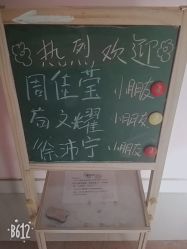 热烈欢迎
周佳莹 小朋友
苟文耀 小朋友
徐沛宁 小朋友
B612